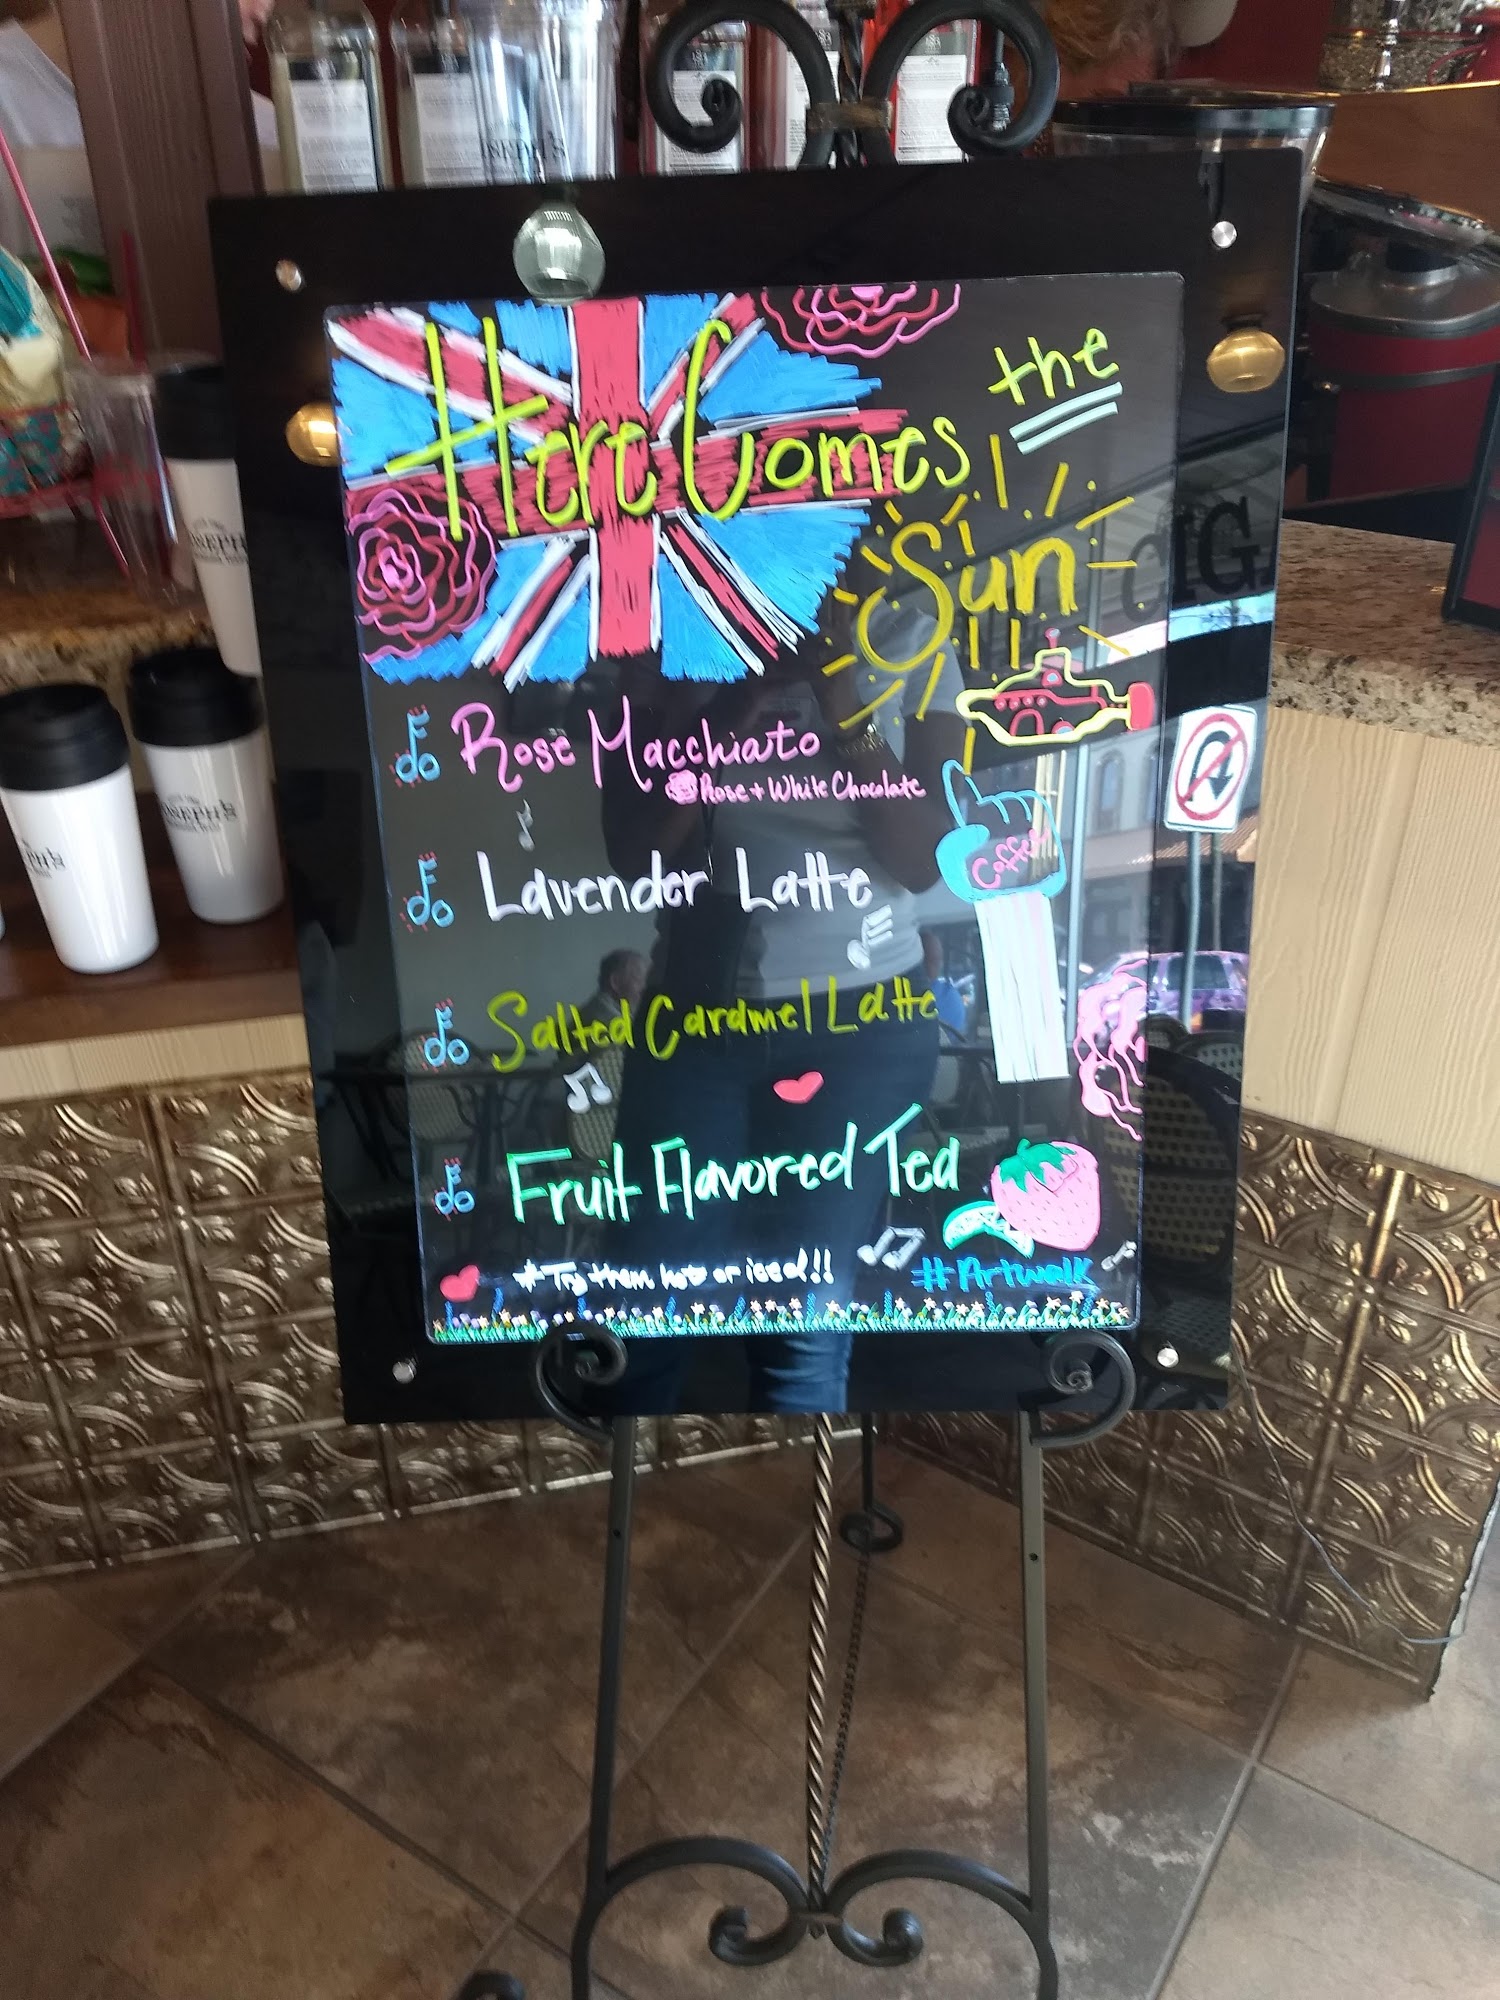 Here Comes the
Sun
Rose Macchiato
Rose + White Chocolate
Lavender Latte
Coffee
Salted Caramel Latte
Fruit Flavored Tea
#Try them hot or iced!!
#Artwalk